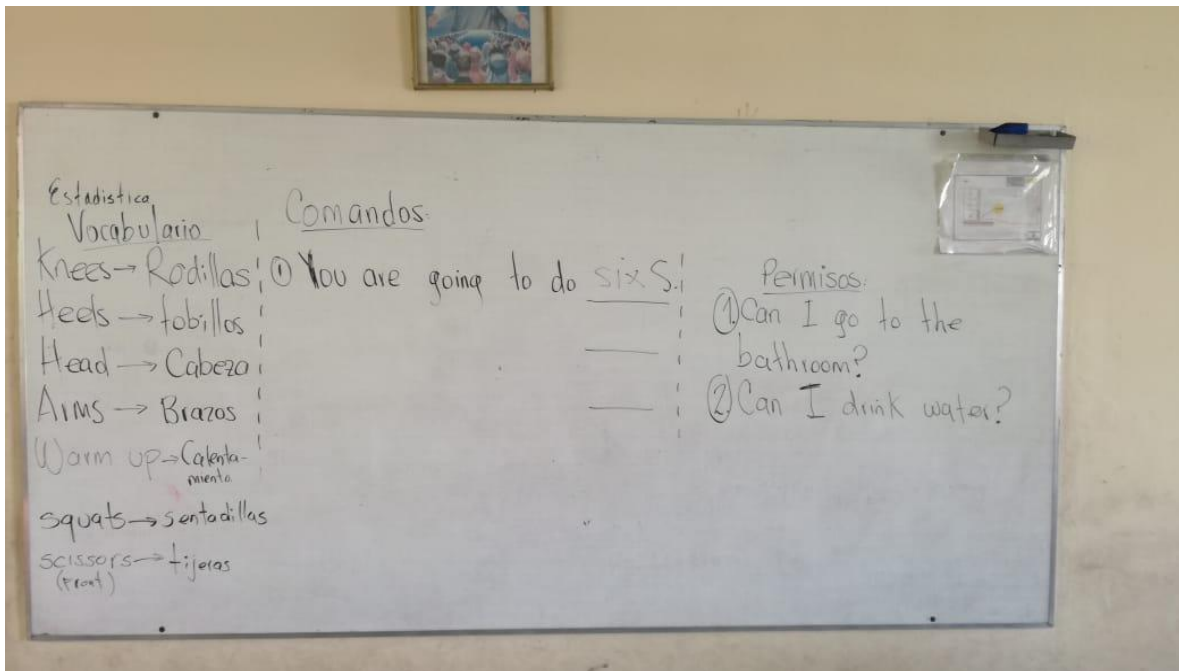 Estadistica
Vocabulario
Knees → Rodillas
Heels → tobillos
Head → Cabeza
Arms → Brazos
Warm up → Calenta-
miento
squats → sentadillas
scissors → tijeras
(Front)
Comandos:
① You are going to do six S.
Permisos:
① Can I go to the
bathroom?
② Can I drink water?